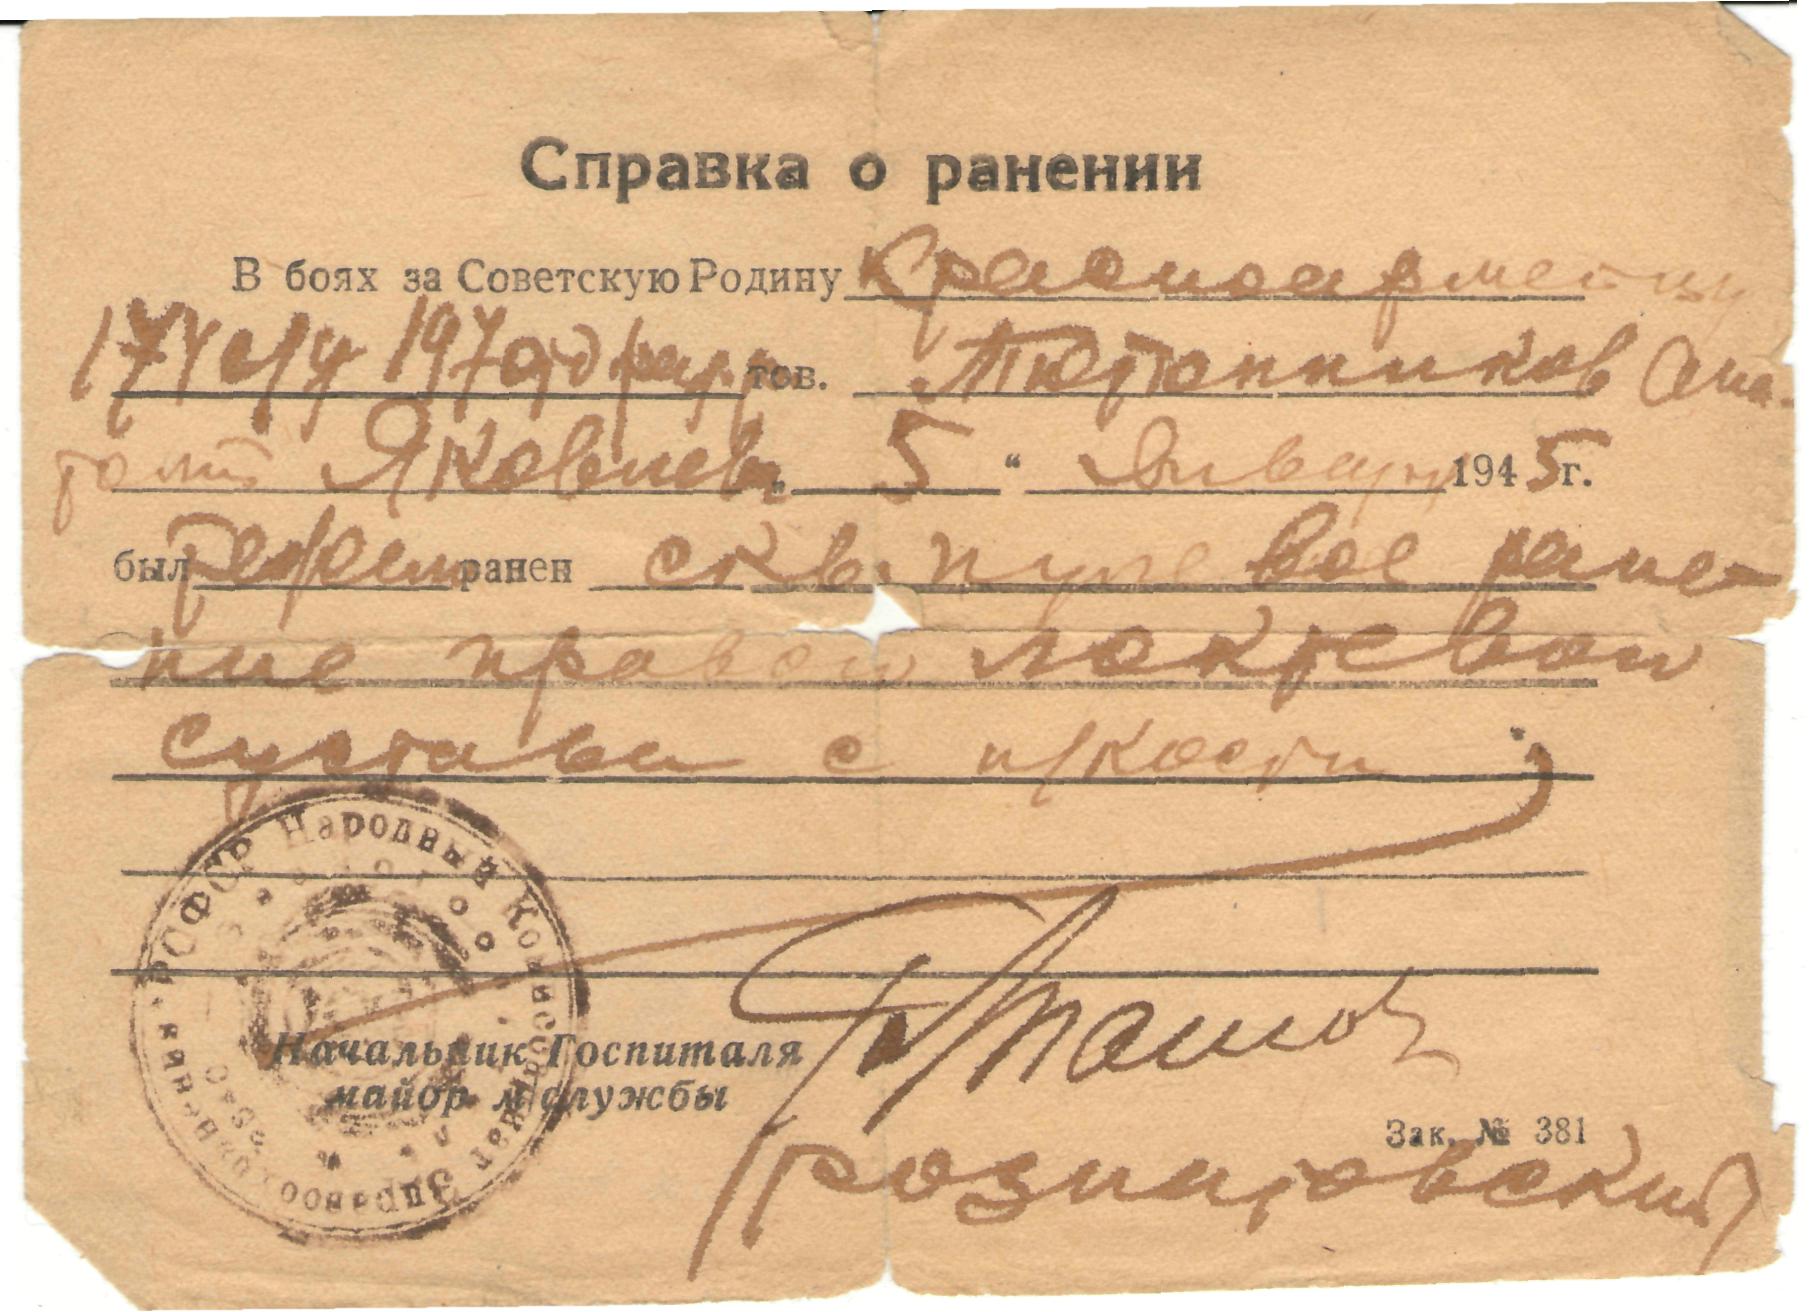 Справка о ранении
В боях за Советскую Родину Красноармейцу
тов. Тютюнников Ана-
толий Яковлев. „ 5 “ Января 1945 г.
был ранен скв. пулевое ране-
ние правой локтевой
сустава с
РСФСР Народный Комиссариат Здравоохранения
Начальник Госпиталя
майор м/службы
Зак. № 381